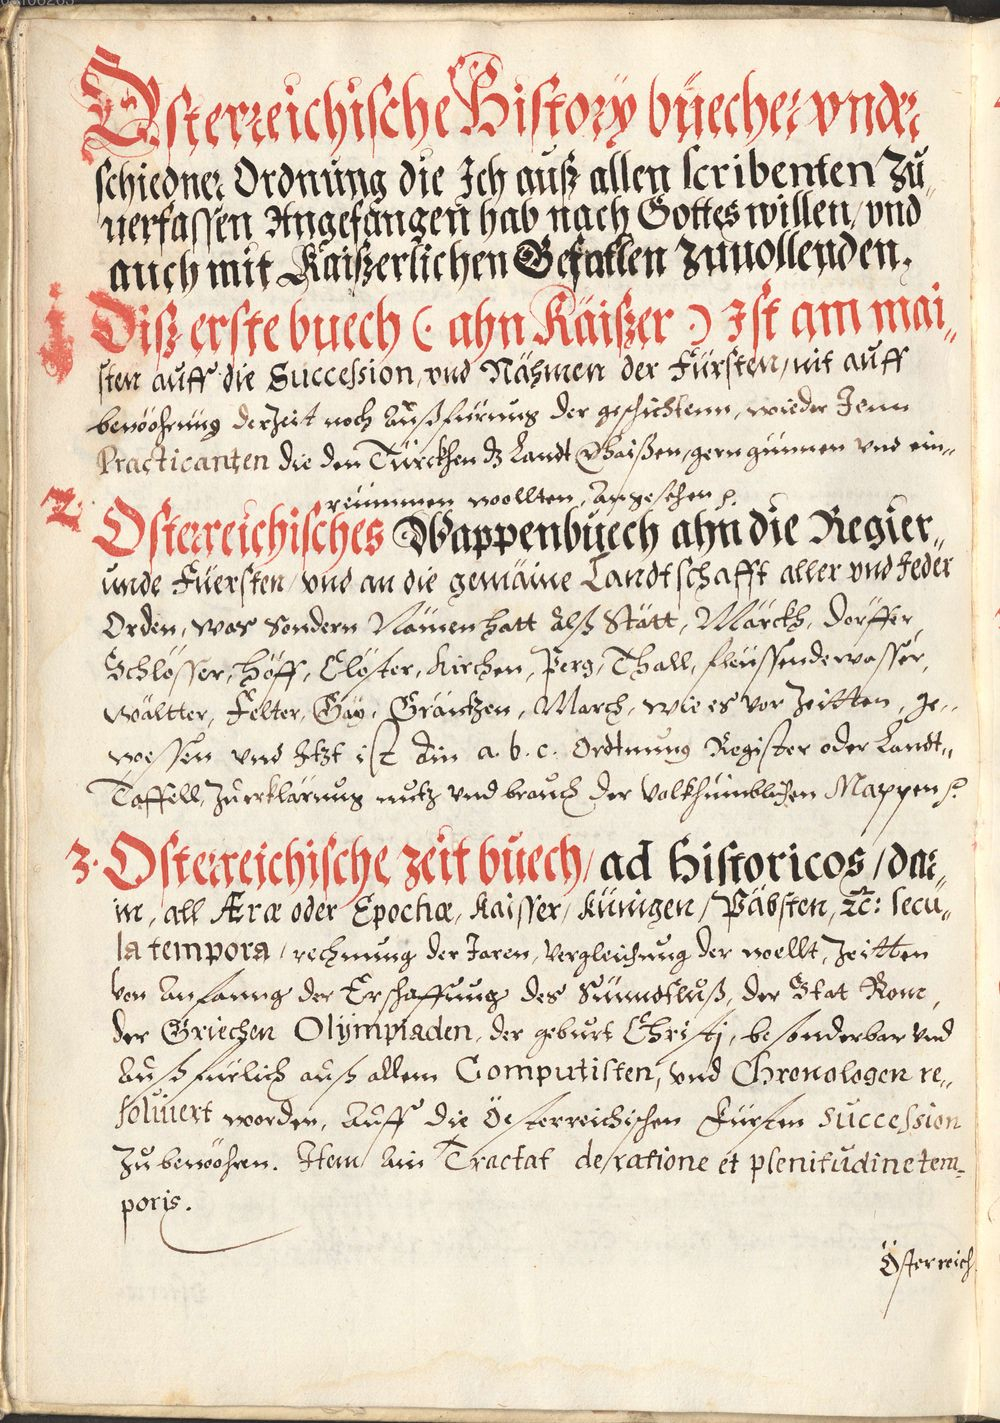 Österreichische History büecher vnder
schiedner Ordnung die Ich auß allen scribenten zu„
uerfassen Angefangen hab nach Gottes willen, vnd
auch mit Kaißerlichen Gefallen zuuollenden.
1 Diß erste buech (: ahn Käißer :) Ist am mai„
sten auff die Succession, vnd Nähmen der Fürsten, mit auff
bewöhrung der Zeit noch Außfürung der geschichtenn, wieder Jenn
Practicanten die den Türckhen dz Landt Ghaißen, gern günnen vnd ein„
reummen wollten, Angesehen
2. Österreichisches Wappenbuech ahn die Regier„
unde Füersten, vnd an die gemäine Landtschafft aller vnd Jeder
Orden, was sondern Nämen hatt Alß Stätt, Märckh, dörffer
Schlösser, höff, Clöster, Kirchen, Perg, Thall, fleüssendewasser,
Wältter, Felter, Gäy, Gräntzen, March, wie es vor Zeitten, ge„
wessen vnd Jtzt ist Ain a. b. c. Ordtnung Register oder Landt„
Taffell, Zu erklärung nutz vnd brauch der Volkhumblichen Mappen
3. Österreichische zeit buech, ad Historicos, dar„
in, all Æræ oder Epochæ, Kaisser, Künigen, Päbsten, ꝛc: secu„
la tempora, rechnung der Jaren, Vergleichung der wellt, Zeitten
von Anfanng der Erschaffung des Sündtfluß, der Stat Rom,
der Griechen Olÿmpiaden, der geburt Christj, besonderbar vnd
Außfürlich auß allem Computisten, vnd Chronologen re„
soluiert worden, Auff die Össterreichischen Fürsten Succession
Zu bewöhren. Item Ain Tractat de ratione et plenitudine tem„
poris.
Österreich